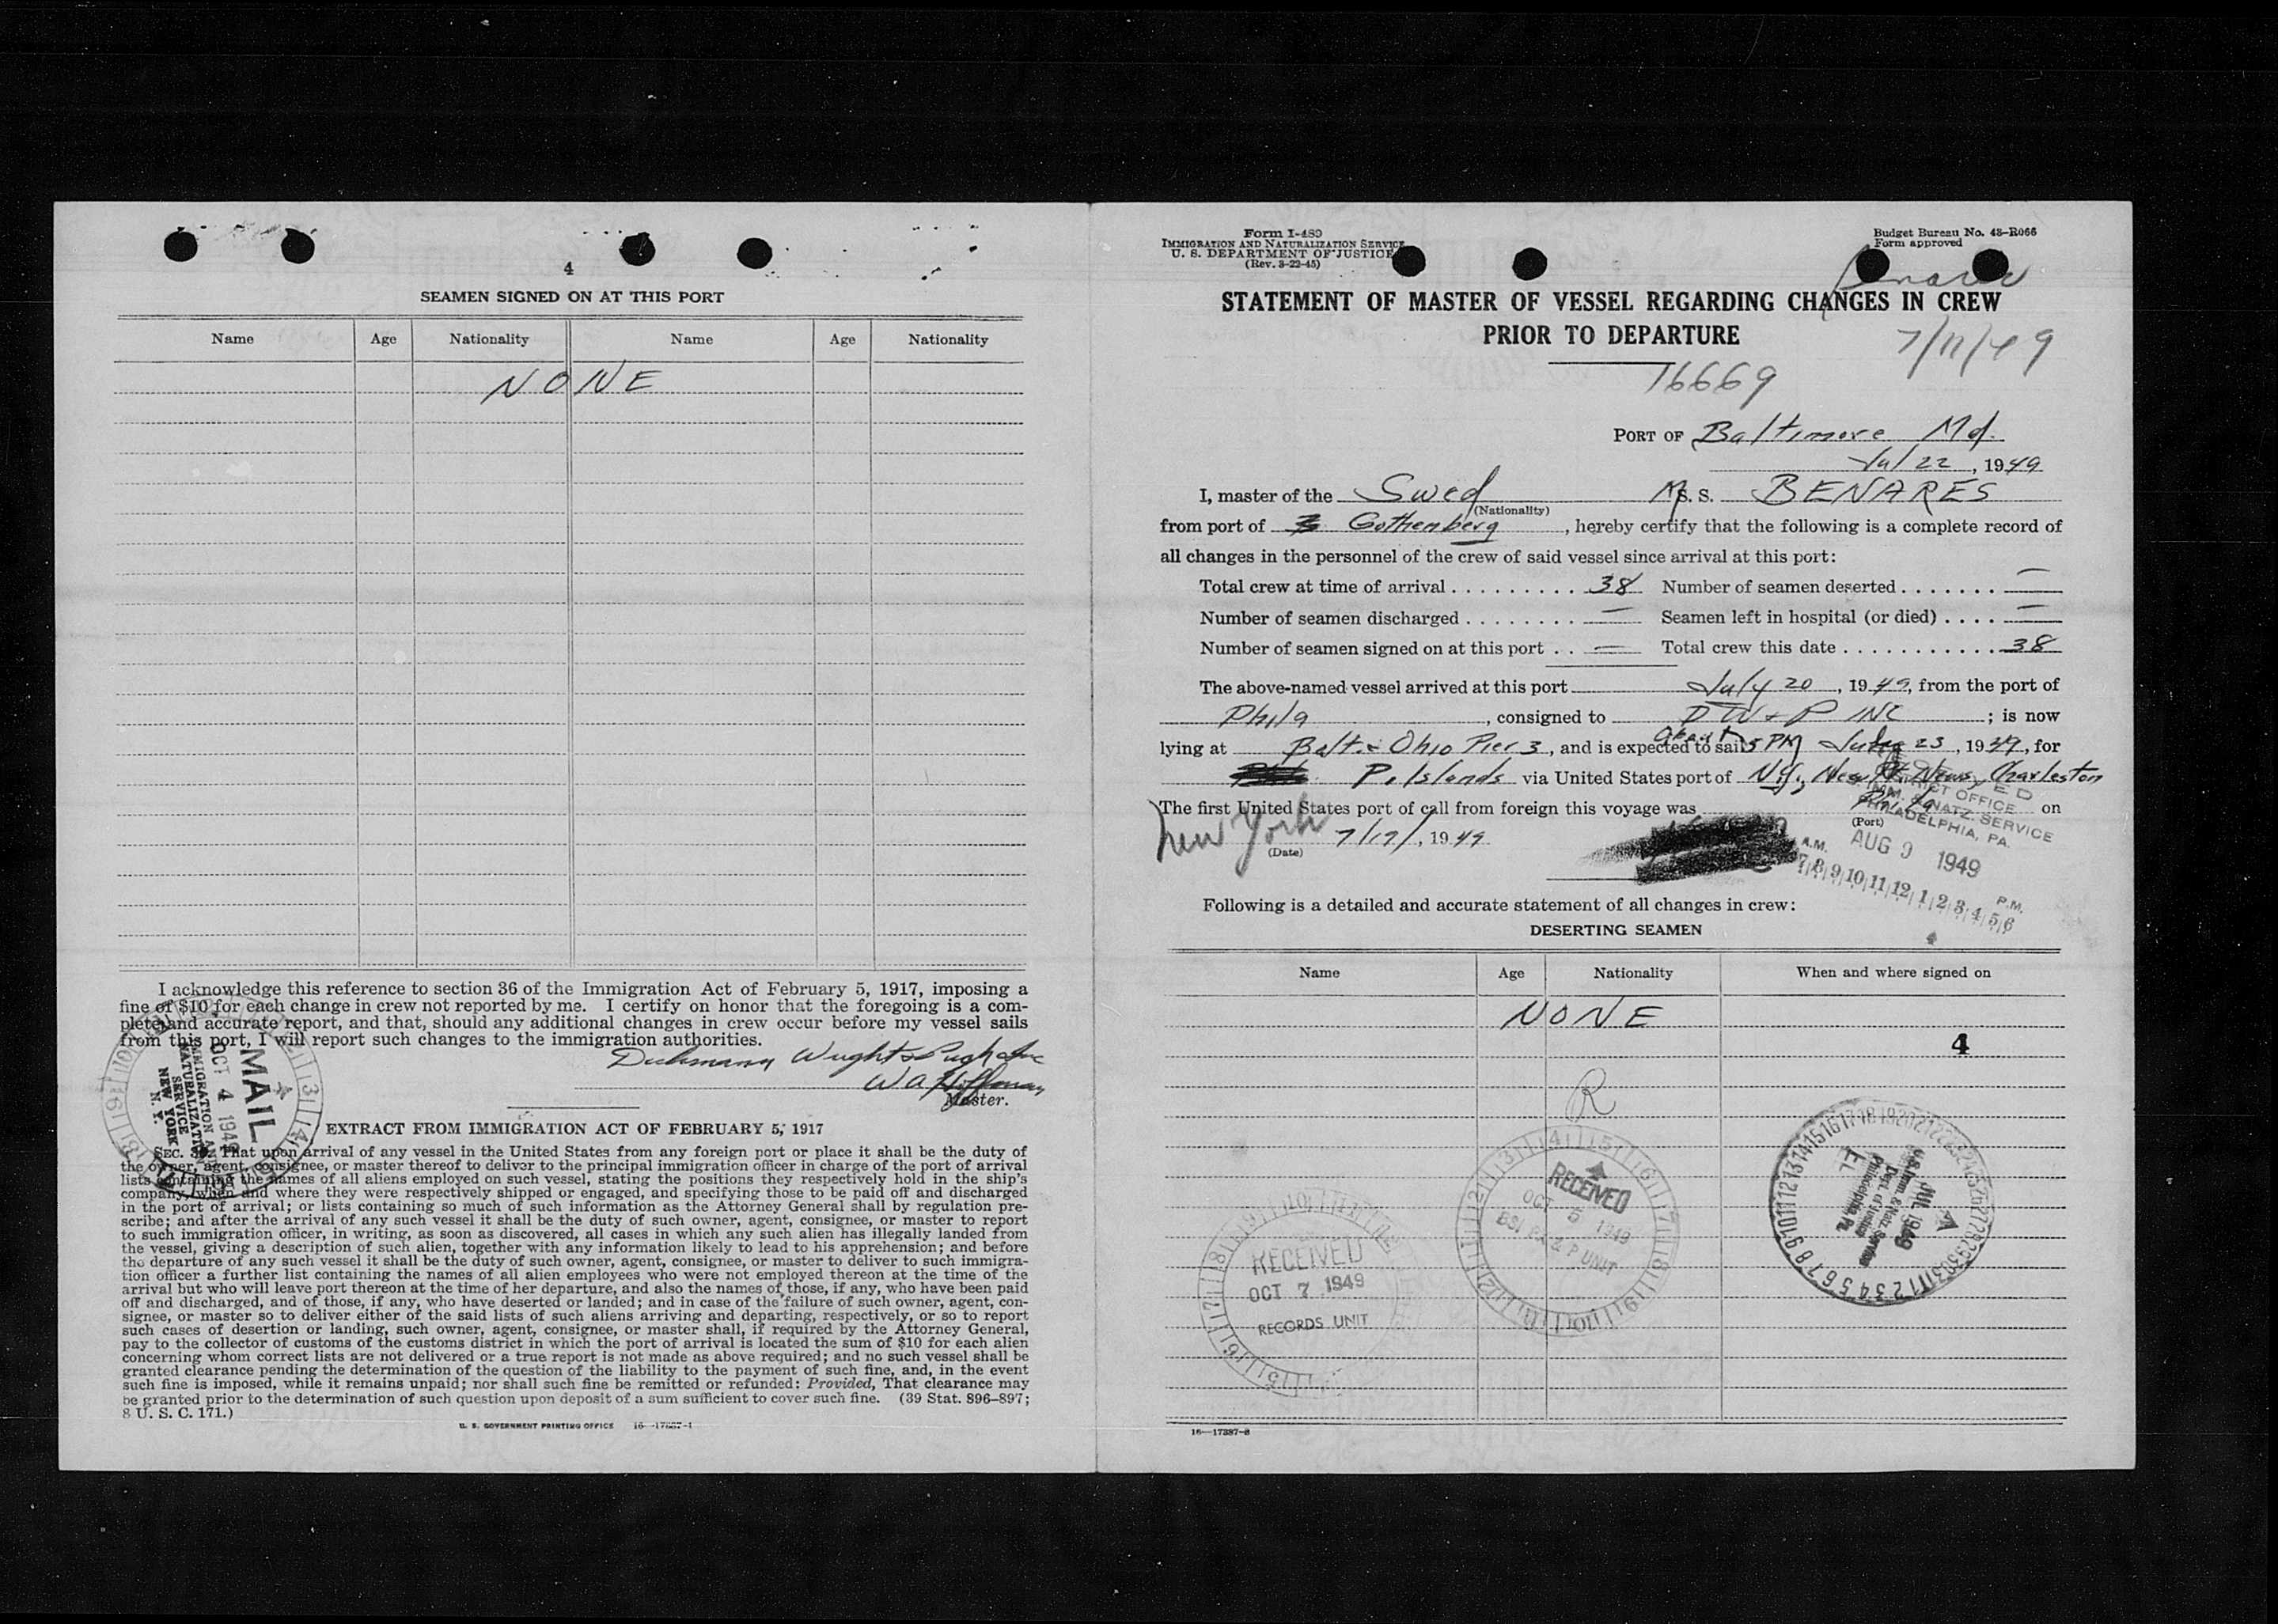 4
SEAMEN SIGNED ON AT THIS PORT
Name Age Nationality Name Age Nationality
NONE
I acknowledge this reference to section 36 of the Immigration Act of February 5, 1917, imposing a
fine of $10 for each change in crew not reported by me. I certify on honor that the foregoing is a com-
plete and accurate report, and that, should any additional changes in crew occur before my vessel sails
from this port, I will report such changes to the immigration authorities.
Wright & Pugh Inc
W A Hoffman
Master.
MAIL
OCT 4 1949
IMMIGRATION AND
NATURALIZATION
SERVICE
NEW YORK
N. Y.
EXTRACT FROM IMMIGRATION ACT OF FEBRUARY 5, 1917
SEC. 36. That upon arrival of any vessel in the United States from any foreign port or place it shall be the duty of
the owner, agent, consignee, or master thereof to deliver to the principal immigration officer in charge of the port of arrival
lists containing the names of all aliens employed on such vessel, stating the positions they respectively hold in the ship's
company, when and where they were respectively shipped or engaged, and specifying those to be paid off and discharged
in the port of arrival; or lists containing so much of such information as the Attorney General shall by regulation pre-
scribe; and after the arrival of any such vessel it shall be the duty of such owner, agent, consignee, or master to report
to such immigration officer, in writing, as soon as discovered, all cases in which any such alien has illegally landed from
the vessel, giving a description of such alien, together with any information likely to lead to his apprehension; and before
the departure of any such vessel it shall be the duty of such owner, agent, consignee, or master to deliver to such immigra-
tion officer a further list containing the names of all alien employees who were not employed thereon at the time of the
arrival but who will leave port thereon at the time of her departure, and also the names of those, if any, who have been paid
off and discharged, and of those, if any, who have deserted or landed; and in case of the failure of such owner, agent, con-
signee, or master so to deliver either of the said lists of such aliens arriving and departing, respectively, or so to report
such cases of desertion or landing, such owner, agent, consignee, or master shall, if required by the Attorney General,
pay to the collector of customs of the customs district in which the port of arrival is located the sum of $10 for each alien
concerning whom correct lists are not delivered or a true report is not made as above required; and no such vessel shall be
granted clearance pending the determination of the question of the liability to the payment of such fine, and, in the event
such fine is imposed, while it remains unpaid; nor shall such fine be remitted or refunded: Provided, That clearance may
be granted prior to the determination of such question upon deposit of a sum sufficient to cover such fine. (39 Stat. 896–897;
8 U. S. C. 171.)
U. S. GOVERNMENT PRINTING OFFICE
Form I-489
IMMIGRATION AND NATURALIZATION SERVICE
U. S. DEPARTMENT OF JUSTICE
(Rev. 3-22-45)
Budget Bureau No. 43-R066
Form approved
Benares
STATEMENT OF MASTER OF VESSEL REGARDING CHANGES IN CREW
PRIOR TO DEPARTURE
7/11/49
16669
PORT OF Baltimore Md.
Jul 22, 1949
I, master of the Swed M. S. BENARES
(Nationality)
from port of Gothenberg, hereby certify that the following is a complete record of
all changes in the personnel of the crew of said vessel since arrival at this port:
Total crew at time of arrival . . . . . . . . . . 38 Number of seamen deserted . . . . . . . —
Number of seamen discharged . . . . . . . . — Seamen left in hospital (or died) . . . . —
Number of seamen signed on at this port . . — Total crew this date . . . . . . . . . . . . 38
The above-named vessel arrived at this port July 20, 1949, from the port of
Phila, consigned to D W & P INC; is now
lying at Balt. & Ohio Pier 3, and is expected to sail about 5 PM July 23, 1949, for
P. Islands via United States port of N.Y., New Pt. News, Charleston
The first United States port of call from foreign this voyage was Phila on
(Port)
New York 7/17/, 1949
(Date)
DISTRICT OFFICE
IMM. & NATZ. SERVICE
PHILADELPHIA, PA.
AUG 9 1949
A.M. P.M.
7|8|9|10|11|12|1|2|3|4|5|6
Following is a detailed and accurate statement of all changes in crew:
DESERTING SEAMEN
Name Age Nationality When and where signed on
NONE
4
R
RECEIVED
OCT 7 1949
RECORDS UNIT
RECEIVED
OCT 5 1949
BSI P UNIT
JUL 1949
U.S. Imm. & Natz. Service
Dept. of Justice
Philadelphia, Pa.
16—17387-3